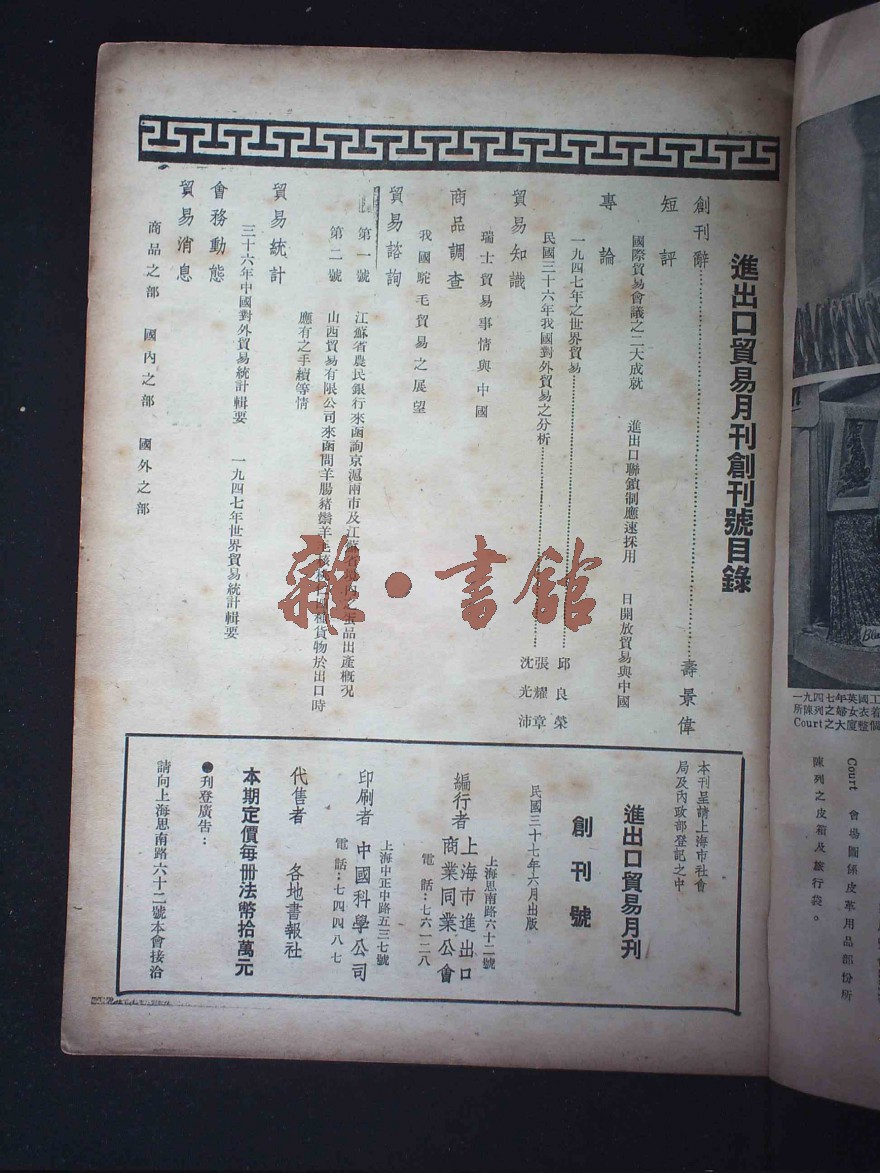 進出口貿易月刊創刊號目錄
創刊辭 壽景偉
短評
國際貿易會議之二大成就 進出口聯鎖制應速採用 日開放貿易與中國
專論
一九四七年之世界貿易 邱良榮
民國三十六年我國對外貿易之分析 張耀章
沈光沛
貿易知識
瑞士貿易事情與中國
商品調查
我國駝毛貿易之展望
貿易諮詢
第一號 江蘇省農民銀行來函詢京滬兩市及江蘇省 品出產概況
第二號 山西貿易有限公司來函問羊腸豬鬃羊毛 種貨物於出口時
應有之手續等情
貿易統計
三十六年中國對外貿易統計輯要 一九四七年世界貿易統計輯要
會務動態
貿易消息
商品之部 國內之部 國外之部
本刊呈請上海市社會
局及內政部登記之中
進出口貿易月刊
創刊號
民國三十七年六月出版
上海思南路六十二號
編行者 上海市進出口
商業同業公會
電話:七六一二八
上海中正中路五三七號
印刷者 中國科學公司
電話:七四四八七
代售者 各地書報社
本期定價每冊法幣拾萬元
●刊登廣告:
請向上海思南路六十二號本會接洽
雜·書館
一九四七年英國工
所陳列之婦女衣着
Court之大廈整個
Court 會場圖係皮革用品部份所
陳列之皮箱及旅行袋。